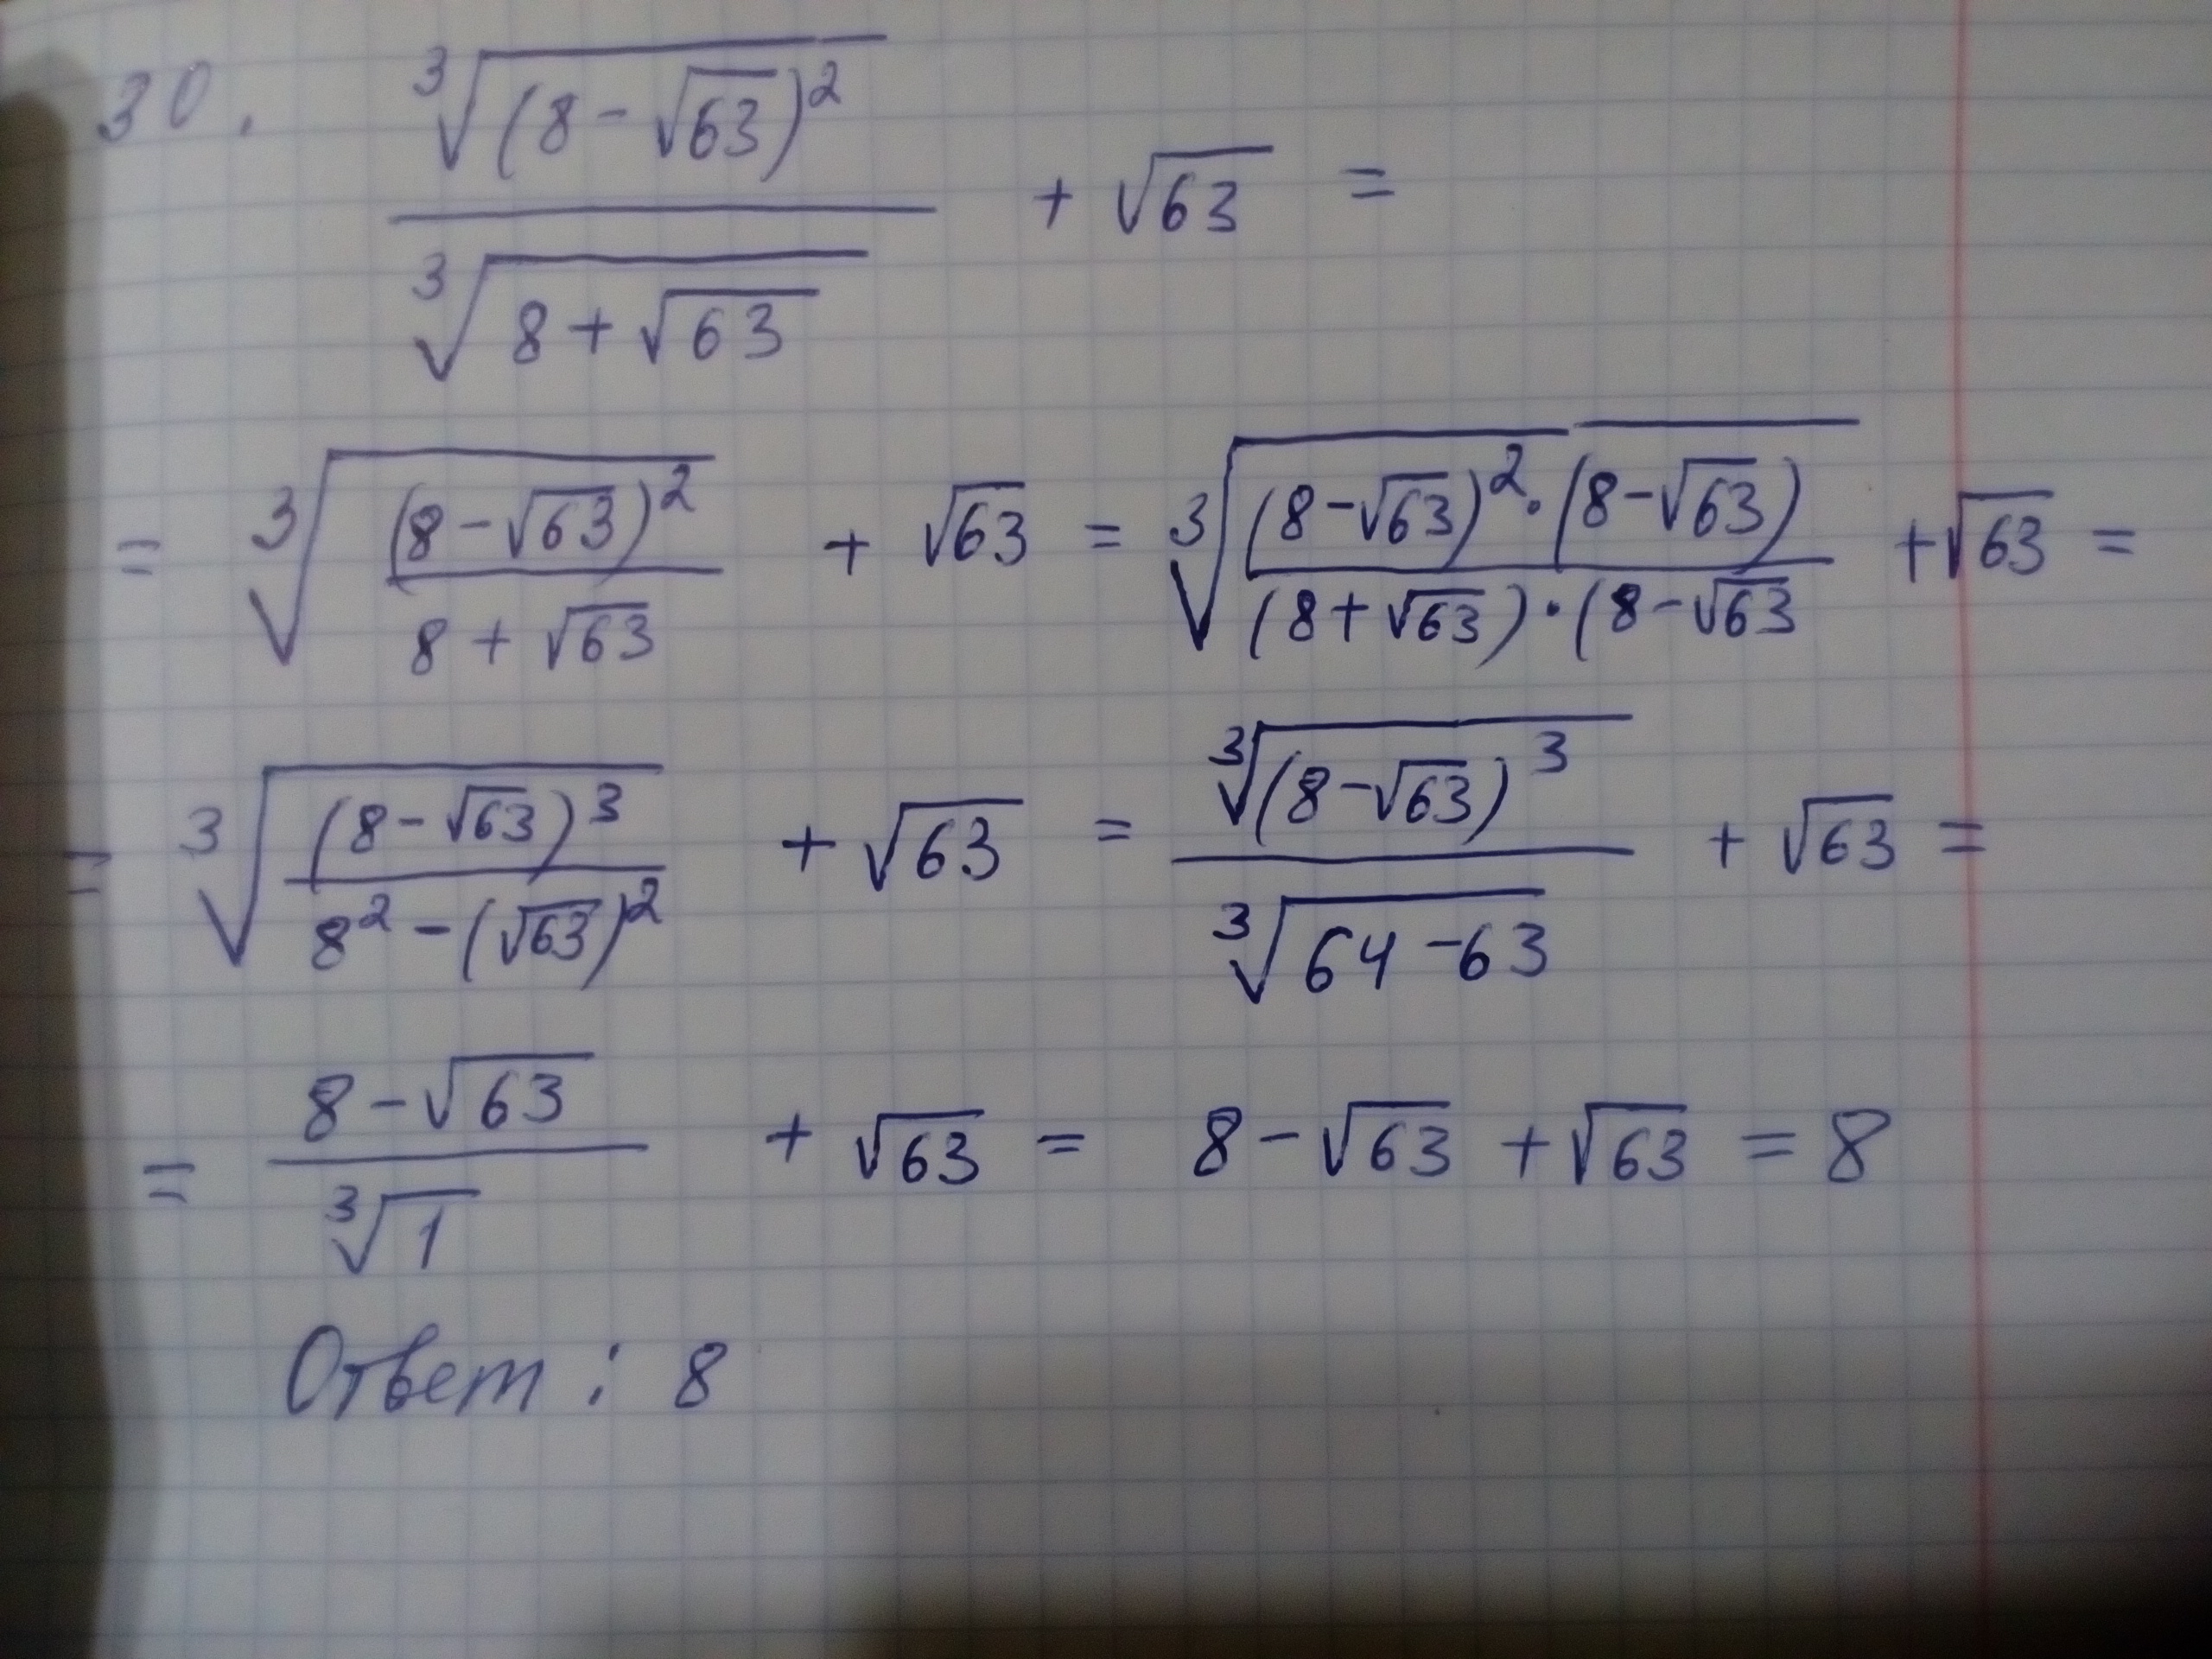 30. ∛((8-√63)²) / ∛(8+√63) + √63 =
= ∛((8-√63)² / (8+√63)) + √63 = ∛((8-√63)²·(8-√63) / (8+√63)·(8-√63) + √63 =
= ∛((8-√63)³ / (8²-(√63)²)) + √63 = ∛((8-√63)³) / ∛(64-63) + √63 =
= (8-√63) / ∛1 + √63 = 8-√63+√63 = 8
Ответ: 8